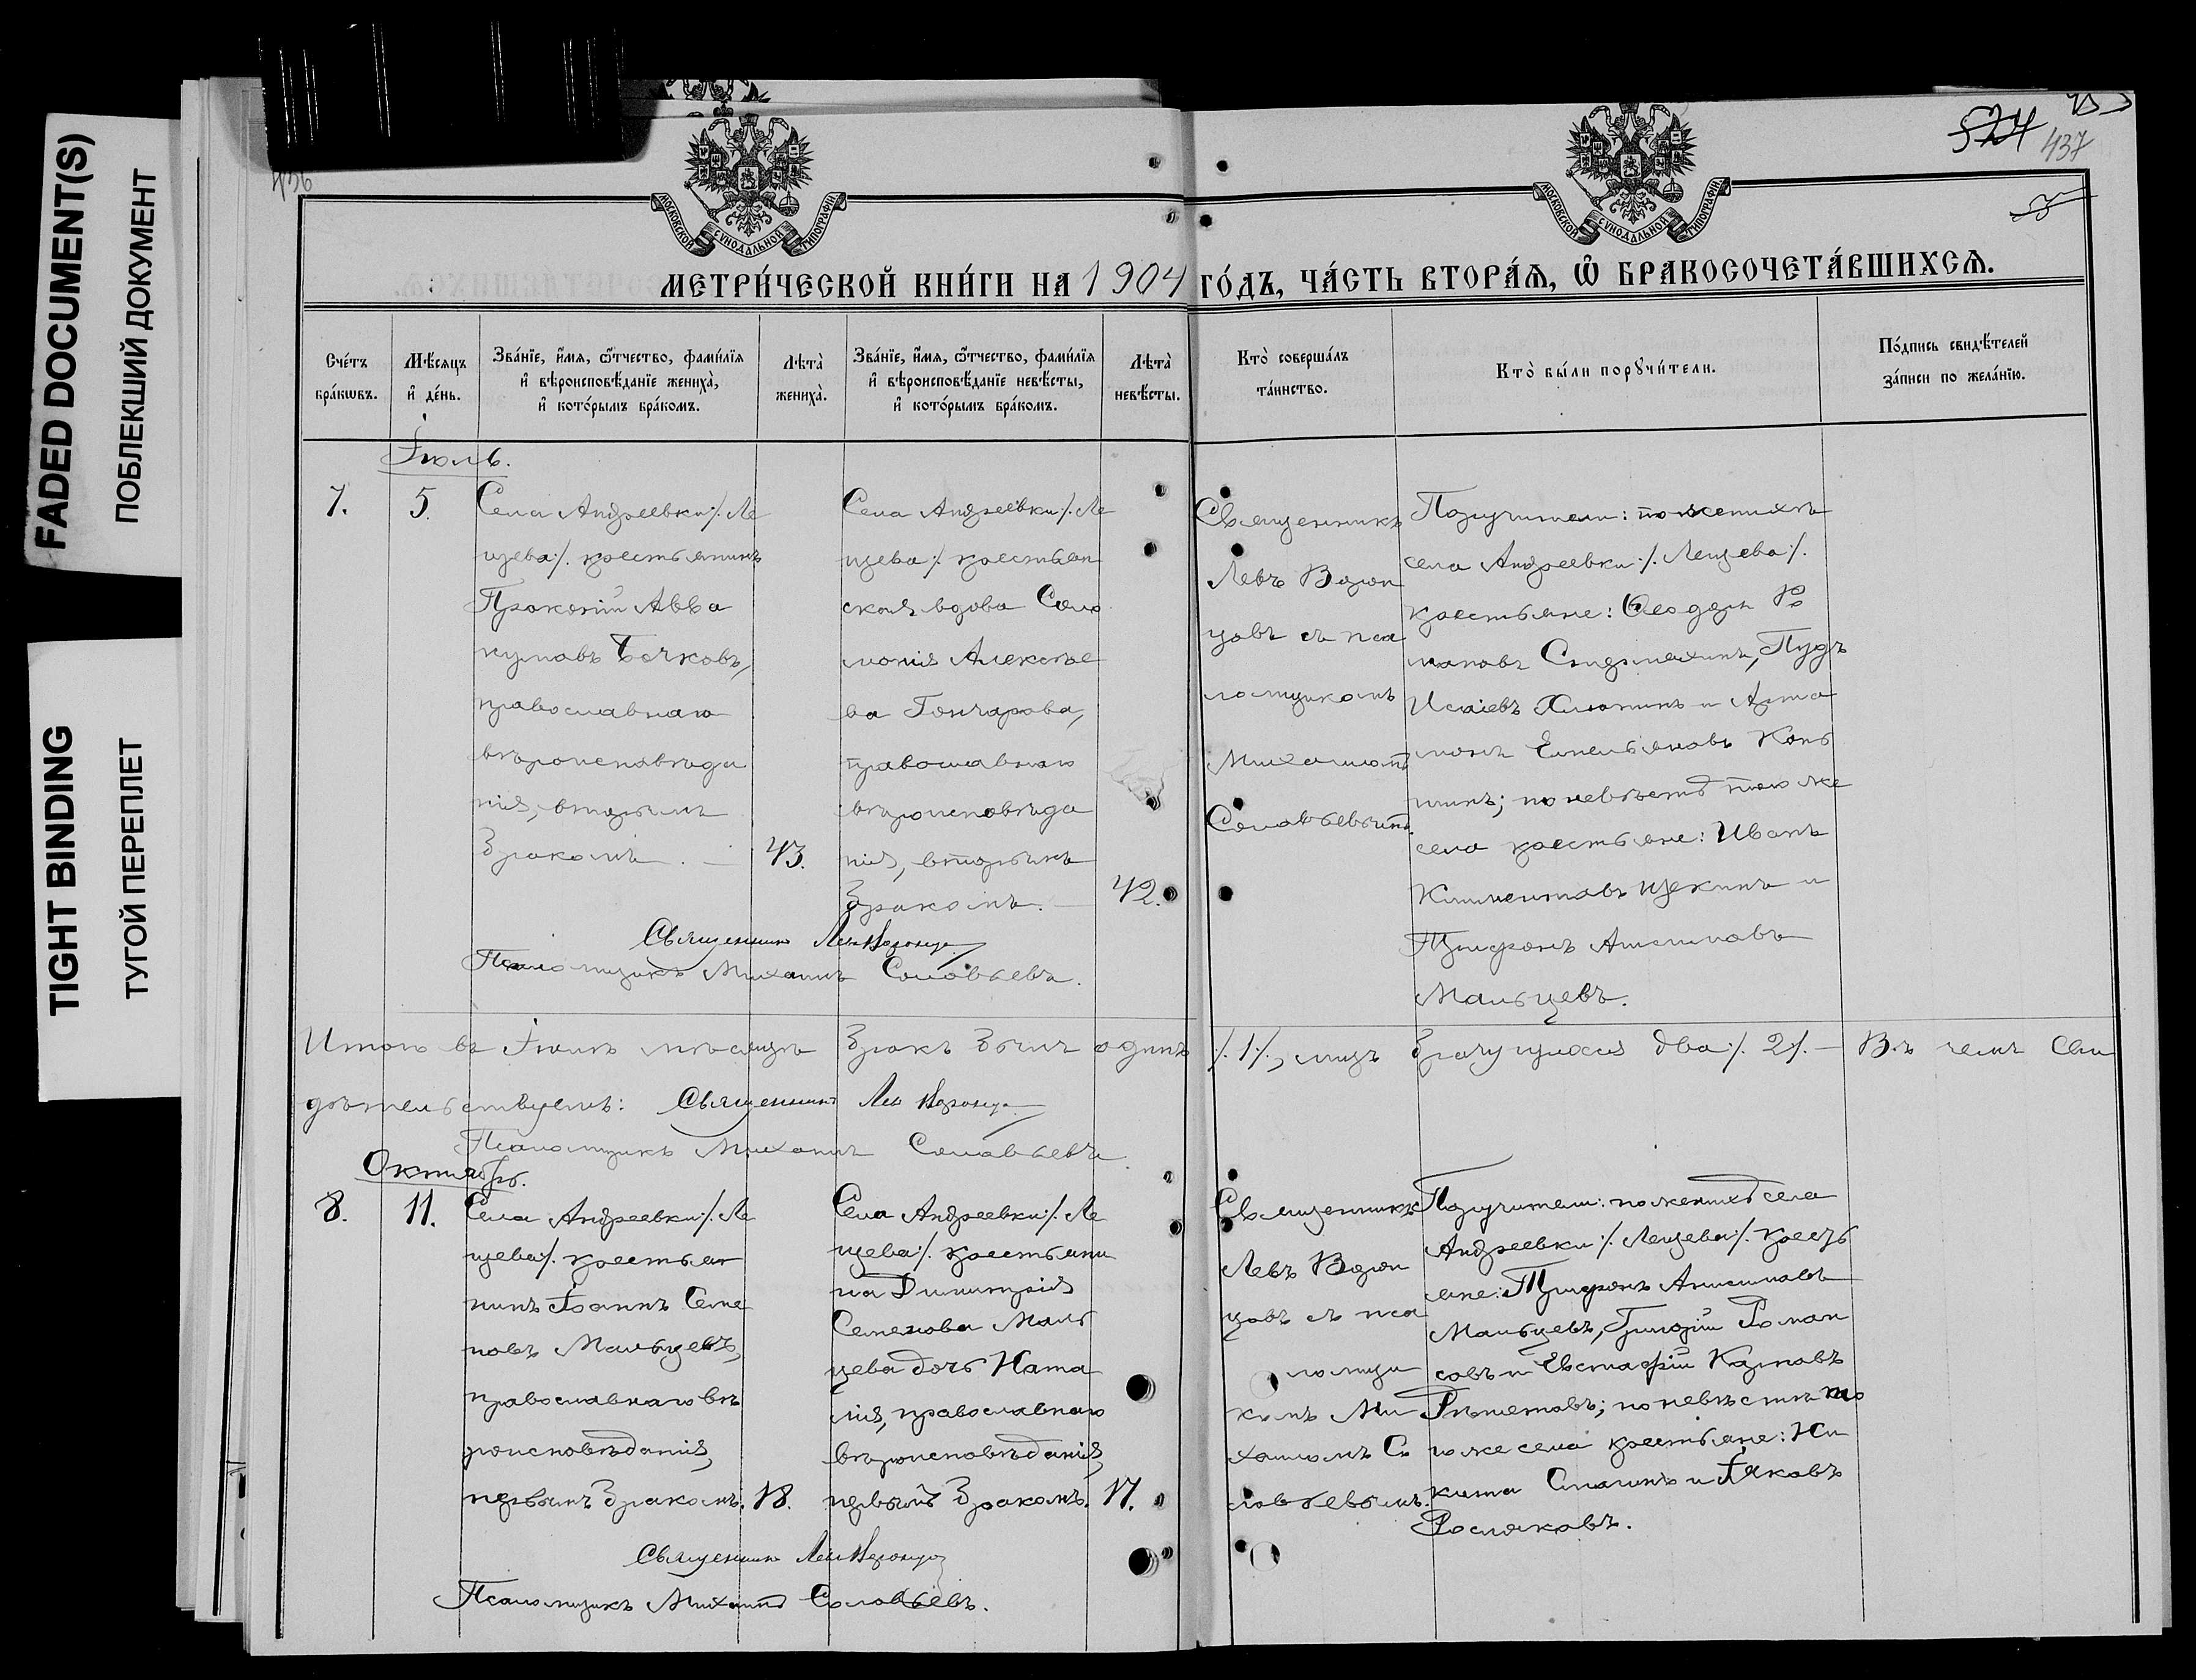 FADED DOCUMENT(S)
ПОБЛЕКШИЙ ДОКУМЕНТ
TIGHT BINDING
ТУГОЙ ПЕРЕПЛЕТ
436
524
437
МОСКОВСКОЙ СѴНОДАЛЬНОЙ ТИПОГРАФІИ
МОСКОВСКОЙ СѴНОДАЛЬНОЙ ТИПОГРАФІИ
МЕТРИ́ЧЕСКОЙ КНИ́ГИ НА 1904 ГО́ДЪ, ЧА́СТЬ ВТОРА́Ѧ, Ѡ҆ БРАКОСОЧЕТА́ВШИХСѦ.
Сче́тъ
бра́кѡвъ.
Мѣ́сяцъ
и҆ де́нь.
Зва́нїе, и҆́мя, ѻ҆́тчество, фами́лїя
и҆ вѣроисповѣ́данїе жениха̀,
и҆ кото́рымъ бра́комъ.
Лѣта̀
жениха̀.
Зва́нїе, и҆́мя, ѻ҆́тчество, фами́лїя
и҆ вѣроисповѣ́данїе невѣ́сты,
и҆ кото́рымъ бра́комъ.
Лѣта̀
невѣ́сты.
Кто̀ соверша́лъ
та́инство.
Кто̀ бы́ли порꙋчи́тели.
По́дпись свидѣ́телей
за́писи по жела́нїю.
Іюль.
7.
5.
Села Андреевки /. Ле
щева /. крестьянинъ
Прокопій Авва
кумовъ Бочковъ,
православнаго
вѣроисповѣда
нія, вторымъ
бракомъ. —
43.
Села Андреевки /. Ле
щева /. крестьян
ская вдова Соло
монія Алексѣе
ва Гончарова,
православнаго
вѣроисповѣда
нія, вторымъ
бракомъ. —
42.
Священникъ
Левъ Ворон
цовъ съ пса
ломщикомъ
Михаиломъ
Соловьевымъ.
Поручители: по женихѣ
села Андреевки /. Лещева /.
крестьяне: Ѳеодоръ Ро
мановъ Сидрмахинъ, Пудъ
Исаіевъ Хлопинъ и Арта
монъ Емельяновъ Коп
шинъ; по невѣстѣ того же
села крестьяне: Иванъ
Климентовъ Щекинъ и
Трифонъ Анисимовъ
Мальцевъ.
Священникъ Левъ Воронцовъ
Псаломщикъ Михаилъ Соловьевъ.
Итого въ Іюлѣ мѣсяцѣ бракъ былъ одинъ /. 1 /., лицъ брачущихся два /. 2 /. — Въ чемъ сви
дѣтельствуемъ: Священникъ Левъ Воронцовъ
Псаломщикъ Михаилъ Соловьевъ.
Октябрь.
8.
11.
Села Андреевки /. Ле
щева /. крестья
нинъ Іоаннъ Семе
новъ Мальцевъ,
православнаго вѣ
роисповѣданія,
первымъ бракомъ.
18.
Села Андреевки /. Ле
щева /. крестьяни
на Димитрія
Семенова Маль
цева дочь Ната
лія, православнаго
вѣроисповѣданія,
первымъ бракомъ.
17.
Священникъ
Левъ Ворон
цовъ съ пса
ломщи
комъ Ми
хаиломъ Со
ловьевымъ.
Поручители: по женихѣ села
Андреевки /. Лещева /. кресть
яне: Трифонъ Анисимовъ
Мальцевъ, Григорій Роман
совъ и Евстафій Карповъ
Рѣшетовъ; по невѣстѣ то
го же села крестьяне: Ни
кита Спагинъ и Іаковъ
Росляковъ.
Священникъ Левъ Воронцовъ
Псаломщикъ Михаилъ Соловьевъ.